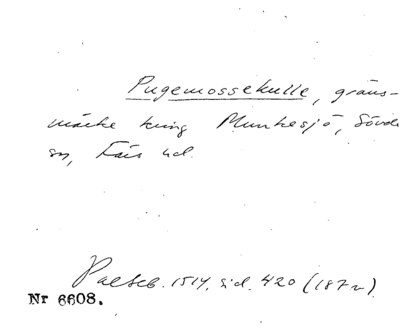 Pugemossekulle, gräns-
märke kring Munkesjö, Sövde
sn, Färs hd.
Palteb. 1514, sid. 420 (187v).
Nr 6608.